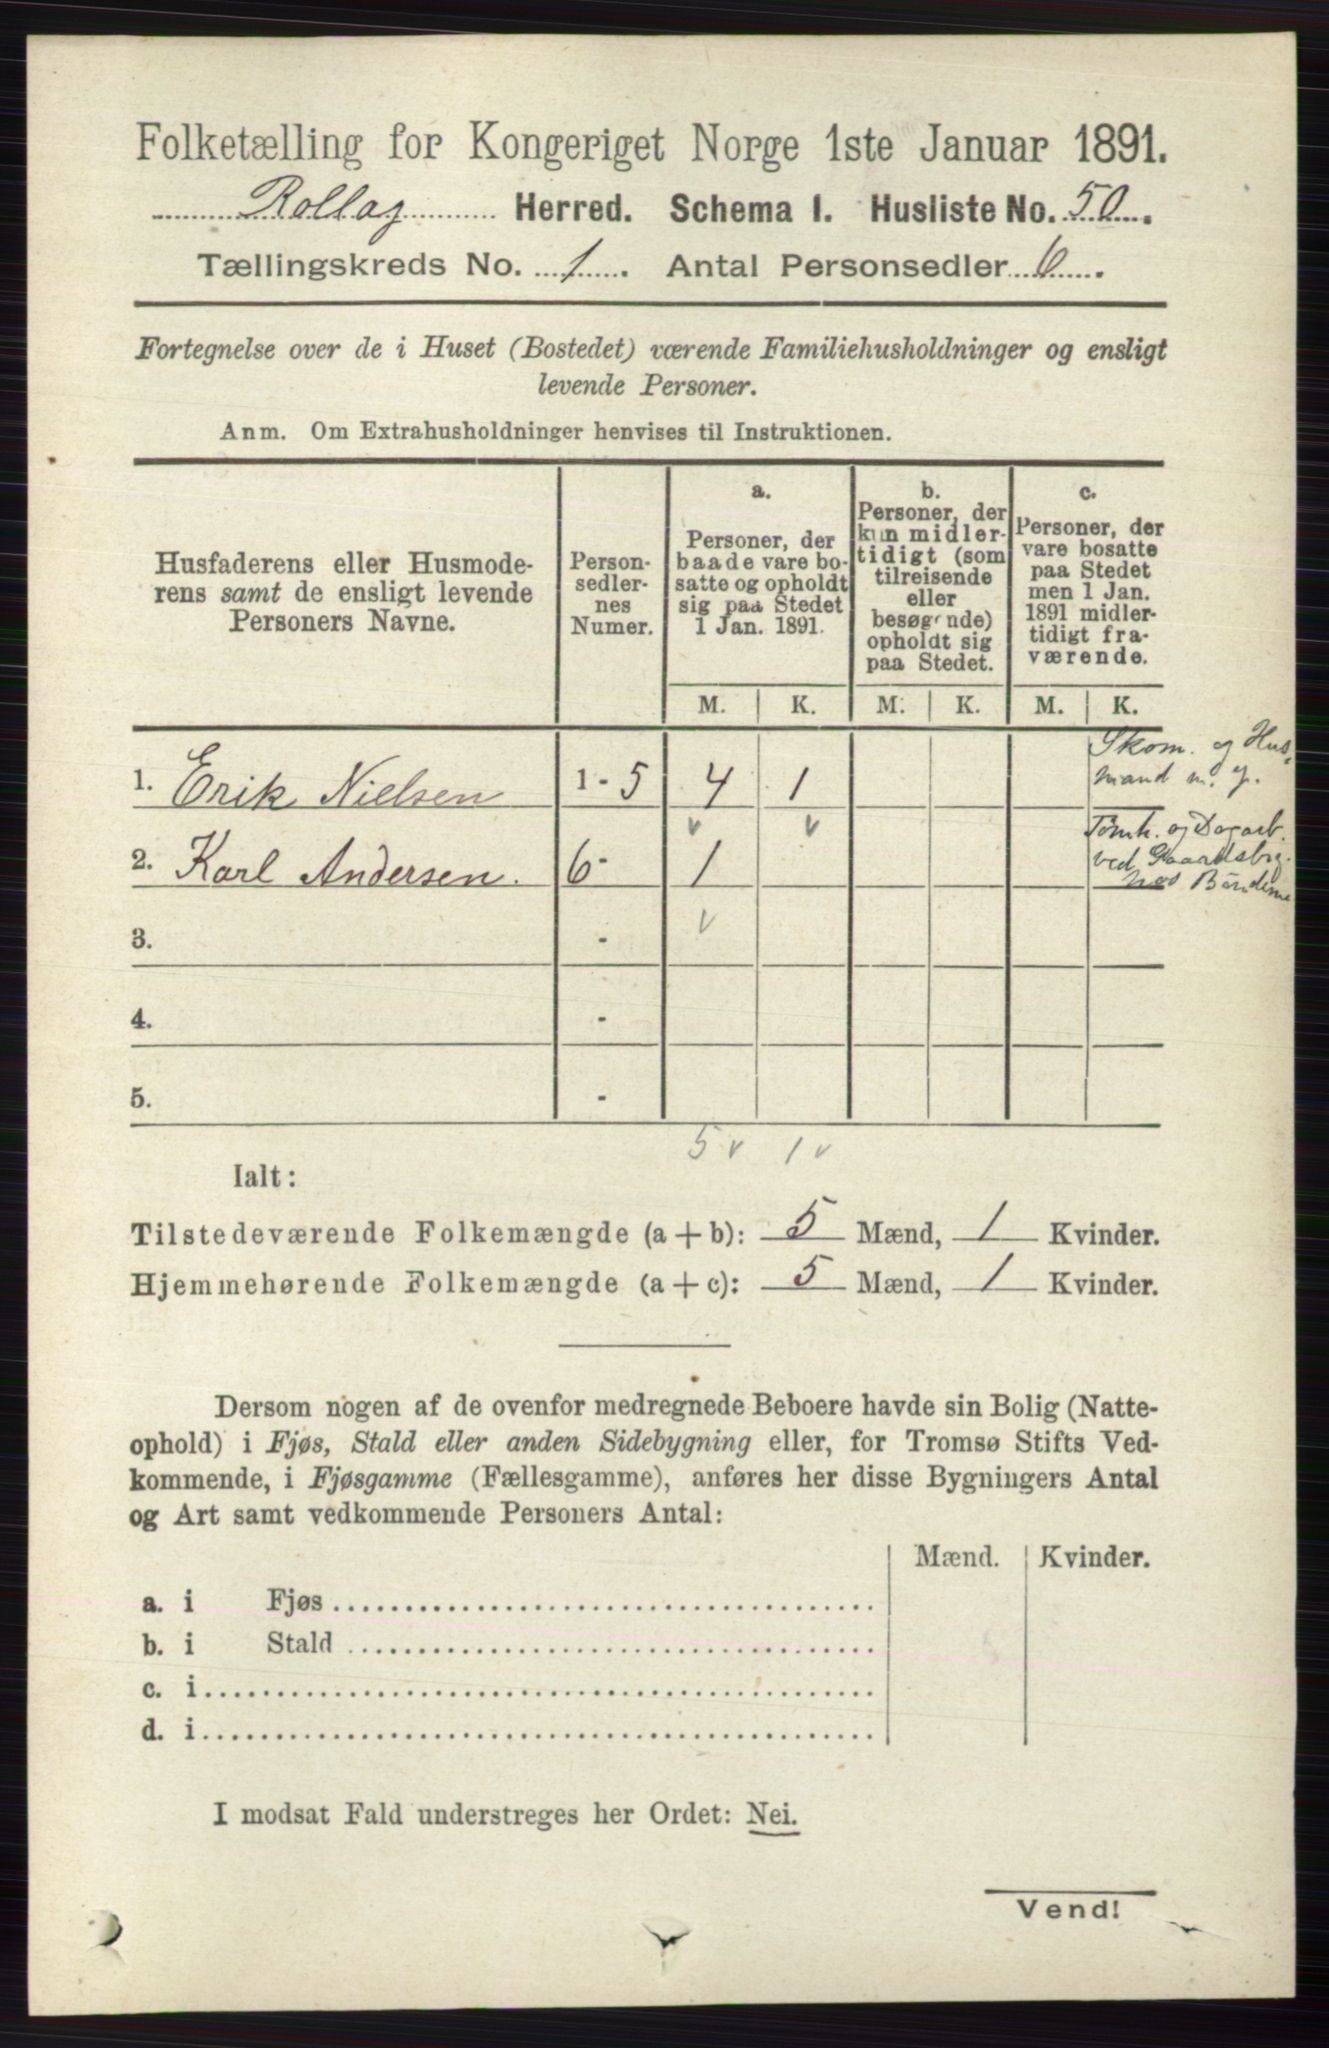 Folketælling for Kongeriget Norge 1ste Januar 1891.
Rollag Herred. Schema I. Husliste No. 50.
Tællingskreds No. 1. Antal Personsedler 6.
Fortegnelse over de i Huset (Bostedet) værende Familiehusholdninger og ensligt
levende Personer.
Anm. Om Extrahusholdninger henvises til Instruktionen.
Husfaderens eller Husmode-
rens samt de ensligt levende
Personers Navne.
Person-
sedler-
nes
Numer.
a.
Personer, der
baade vare bo-
satte og opholdt
sig paa Stedet
1 Jan. 1891.
b.
Personer, der
kun midler-
tidigt (som
tilreisende
eller
besøgende)
opholdt sig
paa Stedet.
c.
Personer, der
vare bosatte
paa Stedet
men 1 Jan.
1891 midler-
tidigt fra-
værende.
M. K. M. K. M. K.
1. Erik Nielsen 1 - 5 4 1
Skom. og Hus-
mand m. J.
2. Karl Andersen. 6 - 1
Tömk. og Dagarb.
ved Gaardsbrg.
hos Bönderne
3. -
4. -
5. -
5 v 1 v
Ialt:
Tilstedeværende Folkemængde (a + b): 5 Mænd, 1 Kvinder.
Hjemmehørende Folkemængde (a + c): 5 Mænd, 1 Kvinder.
Dersom nogen af de ovenfor medregnede Beboere havde sin Bolig (Natte-
ophold) i Fjøs, Stald eller anden Sidebygning eller, for Tromsø Stifts Ved-
kommende, i Fjøsgamme (Fællesgamme), anføres her disse Bygningers Antal
og Art samt vedkommende Personers Antal:
Mænd. Kvinder.
a. i Fjøs
b. i Stald
c. i
d. i
I modsat Fald understreges her Ordet: Nei.
Vend!